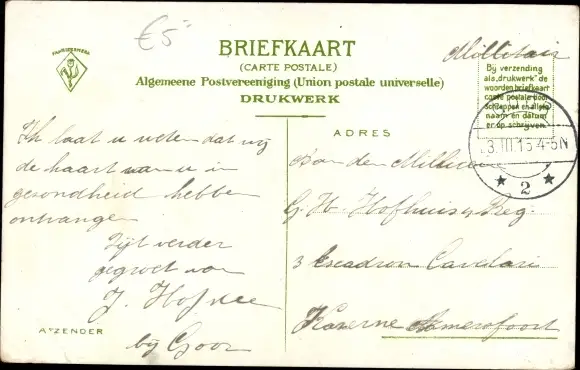 €5-
BRIEFKAART
(CARTE POSTALE)
Algemeene Postvereeniging (Union postale universelle)
DRUKWERK
Millitair
Bij verzending
als „drukwerk" de
woorden briefkaart
carte postale door
schrappen en alleen
naam en datum
er op schrijven.
3.III.15 4-5N
★ 2 ★
Ik laat u weten dat wij
de kaart van u in
gezondheid hebbe
ontvange
Zijt verder
gegroet van
J. Hof
bij Goor
AFZENDER
ADRES
Aan den Millicien
G. H. Hofhuis 4 Reg.
3 Escadron Cavelari
Kaserne Amersfoort